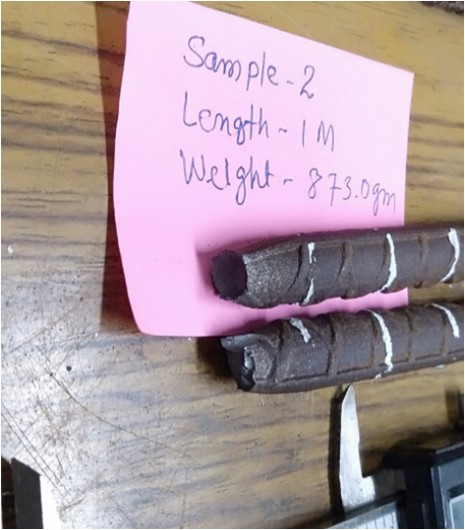 Sample-2
Length - 1M
Weight - 873.0gm